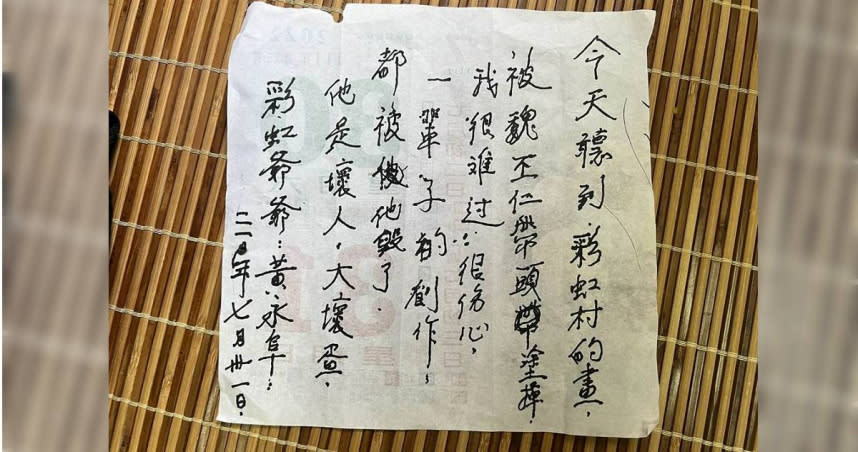 今天聽到,彩虹村的畫,
被魏丕仁帶頭塗掉,
我很难过,很伤心,
一輩子的創作,
都被他毀了.
他是壞人,大壞蛋,
彩虹爺爺:黃永阜:
二〇二二年七月卅一日,